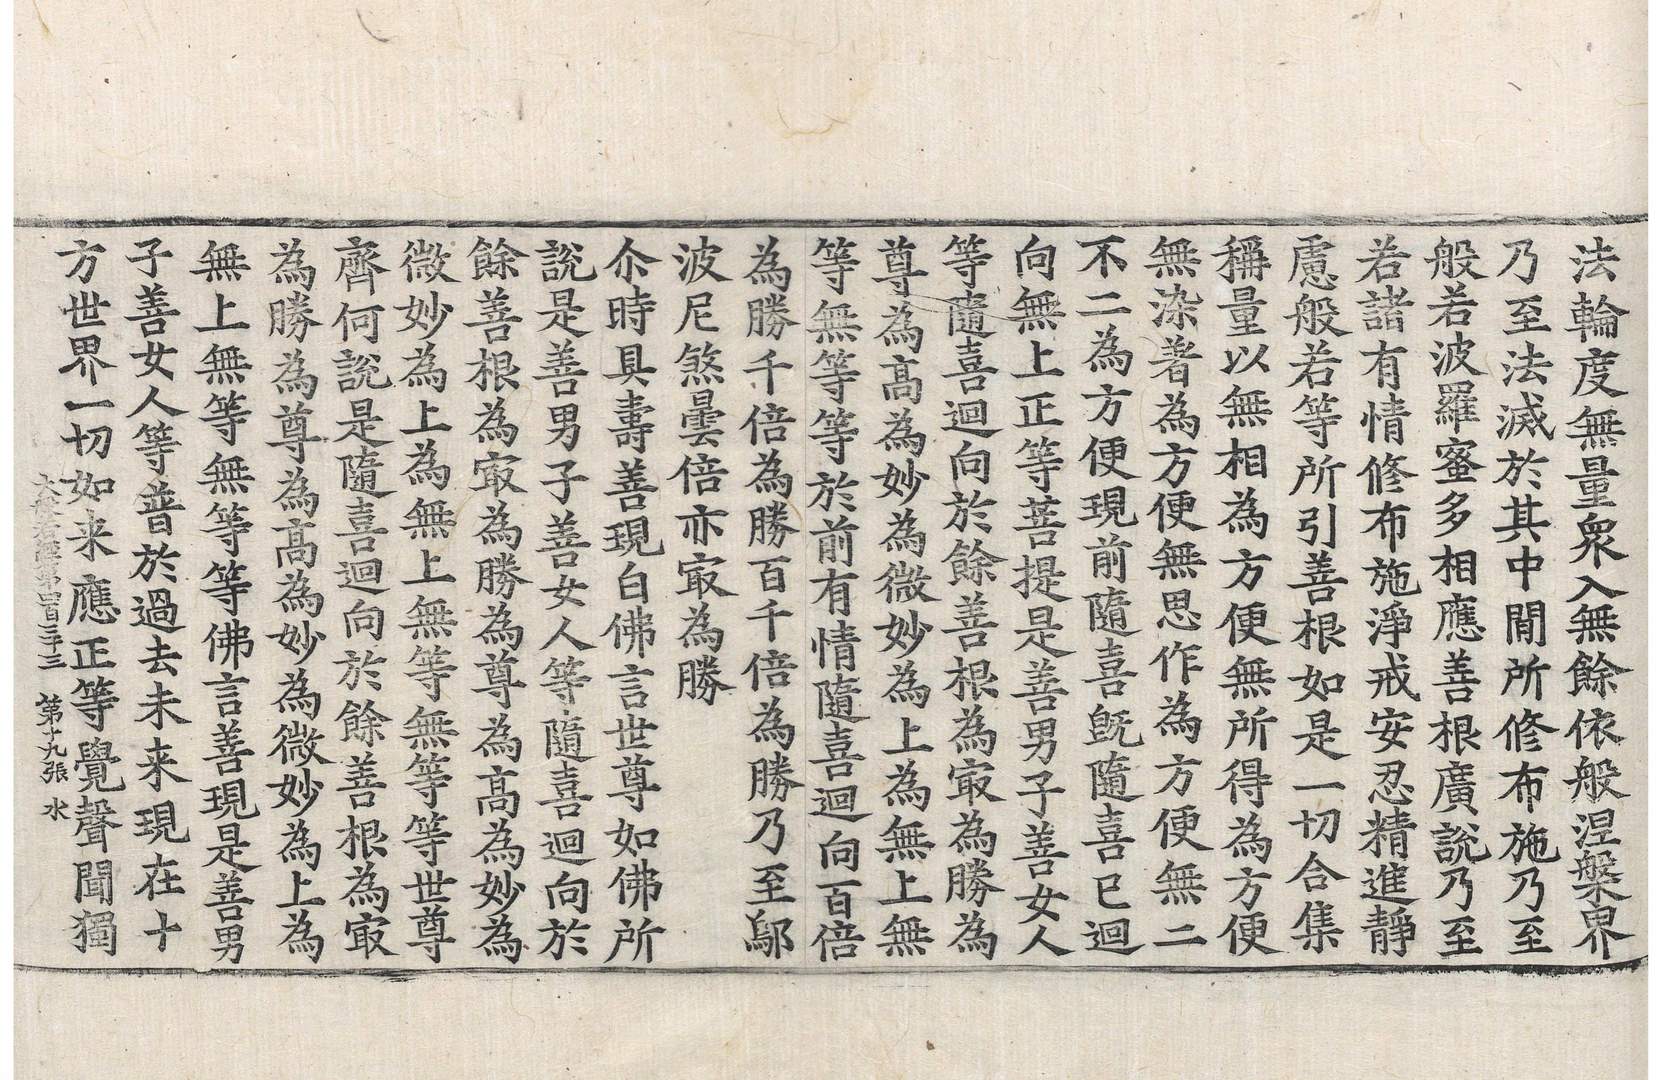 法輪度無量衆入無餘依般涅槃界
乃至法滅於其中閒所修布施乃至
般若波羅蜜多相應善根廣說乃至
若諸有情修布施淨戒安忍精進靜
慮般若等所引善根如是一切合集
稱量以無相爲方便無所得爲方便
無染著爲方便無思作爲方便無二
不二爲方便現前隨喜旣隨喜已迴
向無上正等菩提是善男子善女人
等隨喜迴向於餘善根爲㝡爲勝爲
尊爲高爲妙爲微妙爲上爲無上無
等無等等於前有情隨喜迴向百倍
爲勝千倍爲勝百千倍爲勝乃至鄔
波尼煞曇倍亦㝡爲勝
尒時具壽善現白佛言世尊如佛所
說是善男子善女人等隨喜迴向於
餘善根爲㝡爲勝爲尊爲高爲妙爲
微妙爲上爲無上無等無等等世尊
齊何說是隨喜迴向於餘善根爲㝡
爲勝爲尊爲高爲妙爲微妙爲上爲
無上無等無等等佛言善現是善男
子善女人等普於過去未来現在十
方世界一切如来應正等覺聲聞獨
大般若經第四百三十三 第十九張 水